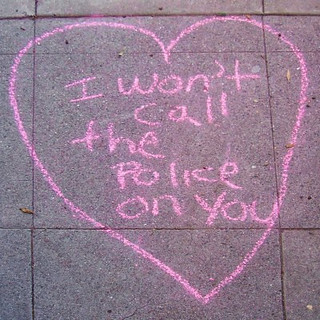 I won't
call
the
Police
on You